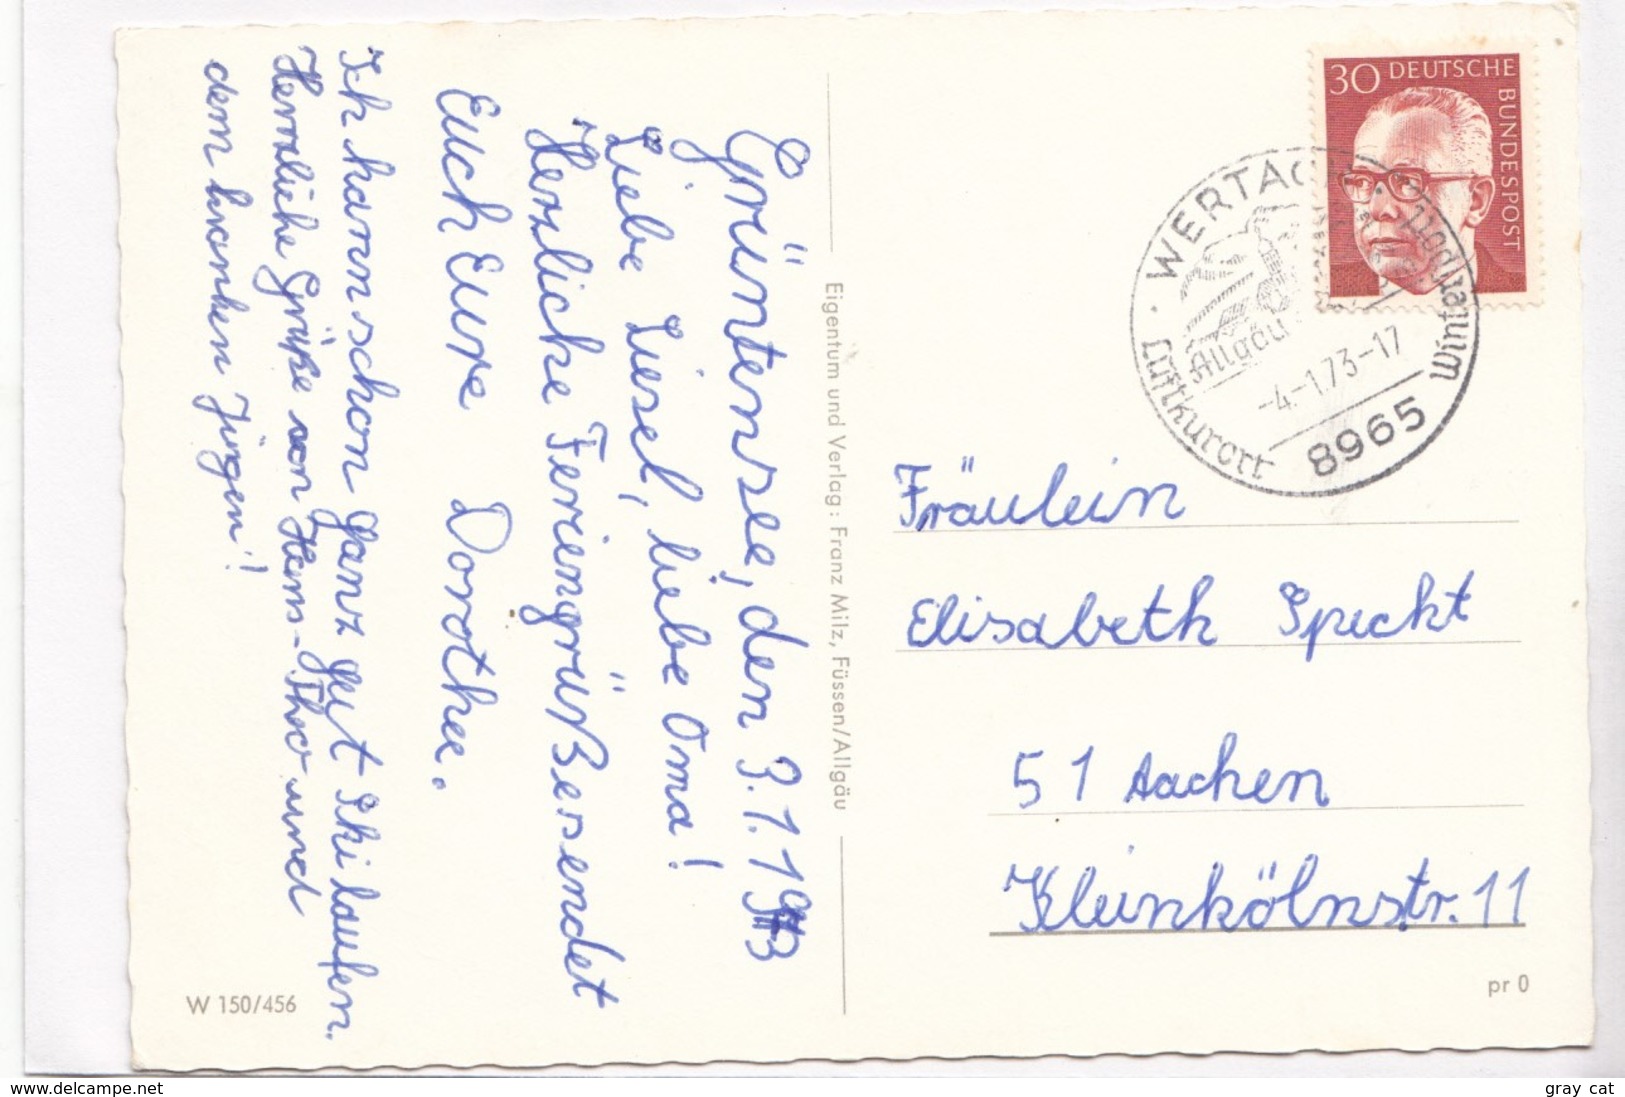 Grüntensee, den 3.1.1973
Liebe Liesel, liebe Oma!
Herzliche Feriengrüße sendet
Euch Eure Dorothee.
Ich kann schon ganz gut Schi laufen.
Herzliche Grüße von Hans-Theo und
dem kranken Jürgen!
Eigentum und Verlag: Franz Milz, Füssen/Allgäu
W 150/456
30 DEUTSCHE
BUNDESPOST
WERTACH
Allgäu
-4.-1.73-17
8965
Luftkurort
Wintersport
Fräulein
Elisabeth Speckt
51 Aachen
Kleinkölnstr. 11
pr 0
www.delcampe.net
gray_cat